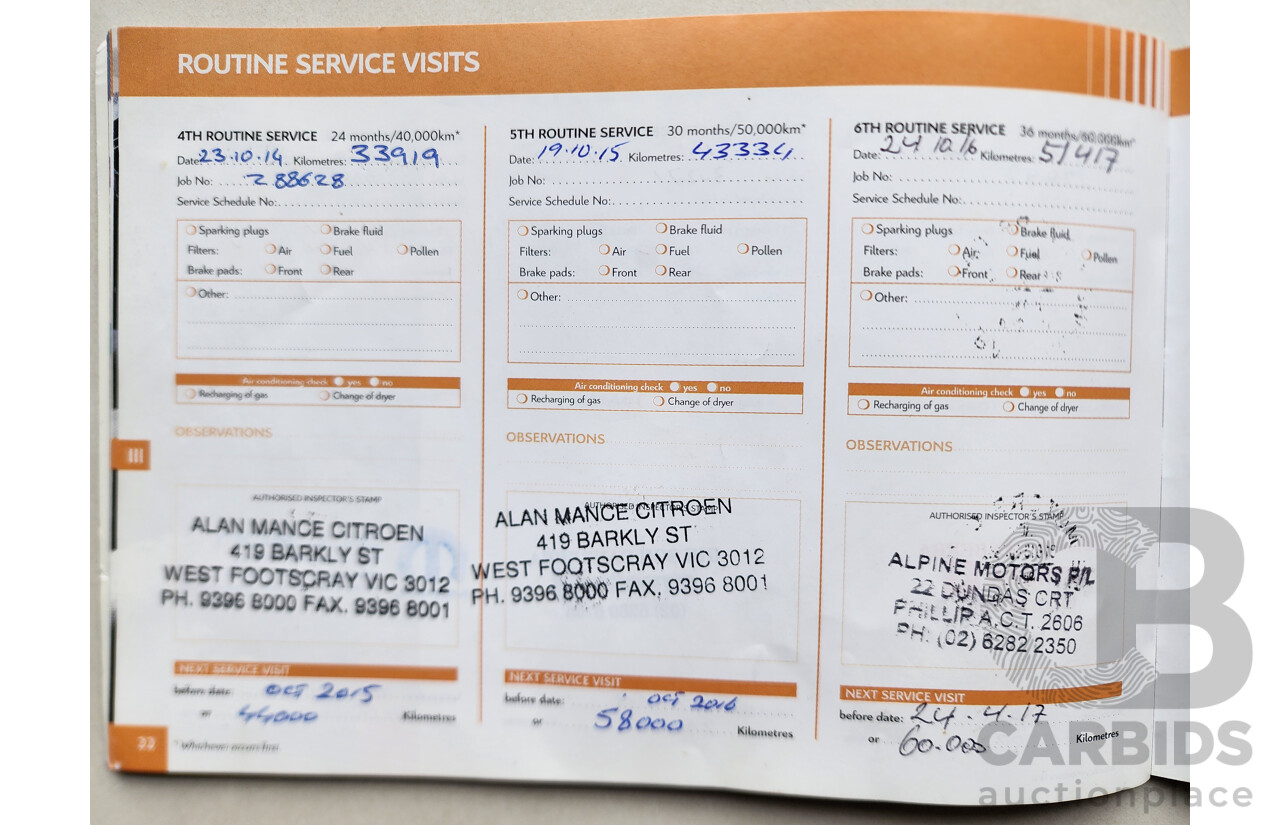 ROUTINE SERVICE VISITS
4TH ROUTINE SERVICE 24 months/40,000km*
Date: 23.10.14 Kilometres: 33919
Job No: 288628
Service Schedule No:
Sparking plugs Brake fluid
Filters: Air Fuel Pollen
Brake pads: Front Rear
Other:
Air conditioning check yes no
Recharging of gas Change of dryer
OBSERVATIONS
AUTHORISED INSPECTOR'S STAMP
ALAN MANCE CITROEN
419 BARKLY ST
WEST FOOTSCRAY VIC 3012
PH. 9396 8000 FAX. 9396 8001
NEXT SERVICE VISIT
before date: OCT 2015
or 44000 Kilometres
5TH ROUTINE SERVICE 30 months/50,000km*
Date: 19.10.15 Kilometres: 43334
Job No:
Service Schedule No:
Sparking plugs Brake fluid
Filters: Air Fuel Pollen
Brake pads: Front Rear
Other:
Air conditioning check yes no
Recharging of gas Change of dryer
OBSERVATIONS
AUTHORISED INSPECTOR'S STAMP
ALAN MANCE CITROEN
419 BARKLY ST
WEST FOOTSCRAY VIC 3012
PH. 9396 8000 FAX. 9396 8001
NEXT SERVICE VISIT
before date: OCT 2016
or 58000 Kilometres
6TH ROUTINE SERVICE 36 months/60,000km*
Date: 24 10 16 Kilometres: 51417
Job No:
Service Schedule No:
Sparking plugs Brake fluid
Filters: Air Fuel Pollen
Brake pads: Front Rear
Other:
Air conditioning check yes no
Recharging of gas Change of dryer
OBSERVATIONS
AUTHORISED INSPECTOR'S STAMP
ALPINE MOTORS P/L
22 DUNDAS CRT
PHILLIP A.C.T. 2606
PH: (02) 6282 2350
NEXT SERVICE VISIT
before date: 24.4.17
or 60.000 Kilometres
III
* Whichever occurs first
B
CARBIDS
auctionplace